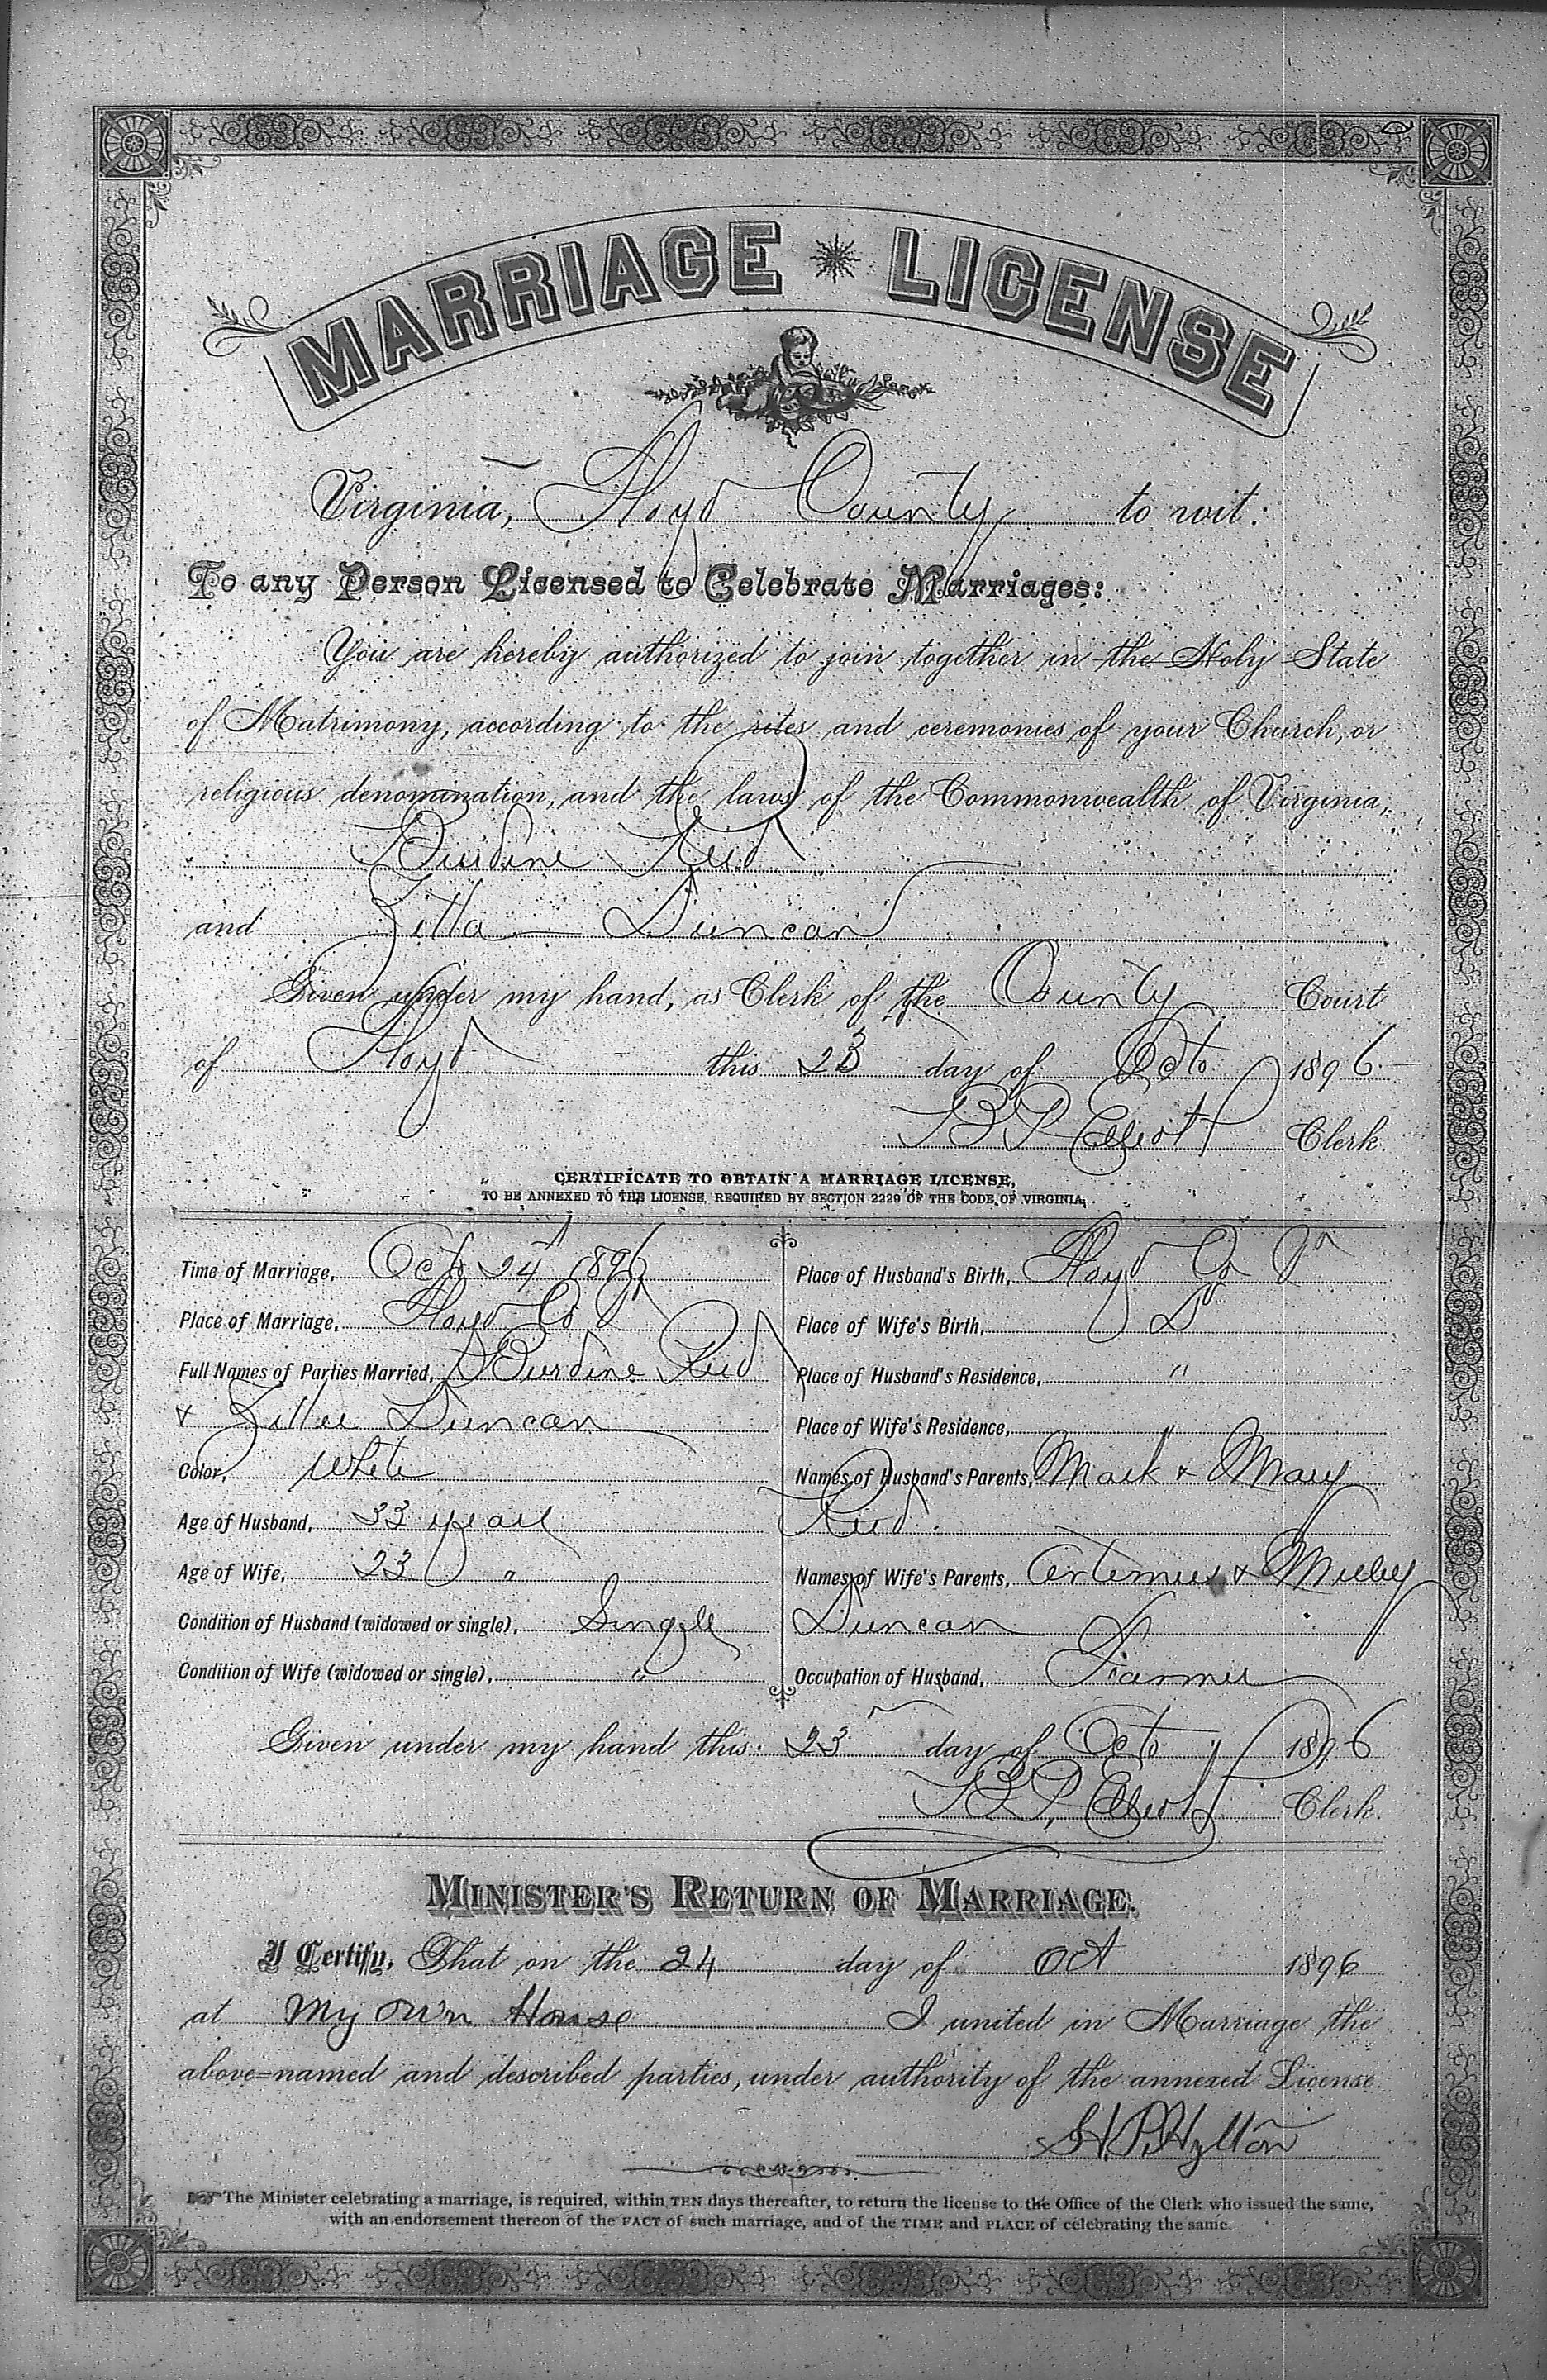 MARRIAGE LICENSE
Virginia, Floyd County to wit:
To any Person Licensed to Celebrate Marriages:
You are hereby authorized to join together in the Holy State
of Matrimony, according to the rites and ceremonies of your Church, or
religious denomination, and the laws of the Commonwealth of Virginia,
Burdine Reed
and Zilla Duncan
Given under my hand, as Clerk of the County Court
of Floyd this 23 day of Octo 1896.
B P Elliott Clerk.
CERTIFICATE TO OBTAIN A MARRIAGE LICENSE,
TO BE ANNEXED TO THE LICENSE, REQUIRED BY SECTION 2229 OF THE CODE OF VIRGINIA.
Time of Marriage, Octo 24 1896
Place of Marriage, Floyd Co Va
Full Names of Parties Married, Burdine Reed
& Duncan
Color, White
Age of Husband, 33 years
Age of Wife, 23 "
Condition of Husband (widowed or single), Single
Condition of Wife (widowed or single), "
Place of Husband's Birth, Floyd Co Va
Place of Wife's Birth, Do
Place of Husband's Residence, "
Place of Wife's Residence, "
Names of Husband's Parents, Mark & Mary
Reed.
Names of Wife's Parents, Artemus &
Duncan
Occupation of Husband, Farmer
Given under my hand this 23 day of Octo 1896
B P, Elliott Clerk.
MINISTER'S RETURN OF MARRIAGE.
I Certify, That on the 24 day of Oct 1896
at My own House I united in Marriage the
above-named and described parties, under authority of the annexed License.
H. P. Hylton
The Minister celebrating a marriage, is required, within TEN days thereafter, to return the license to the Office of the Clerk who issued the same,
with an endorsement thereon of the FACT of such marriage, and of the TIME and PLACE of celebrating the same.